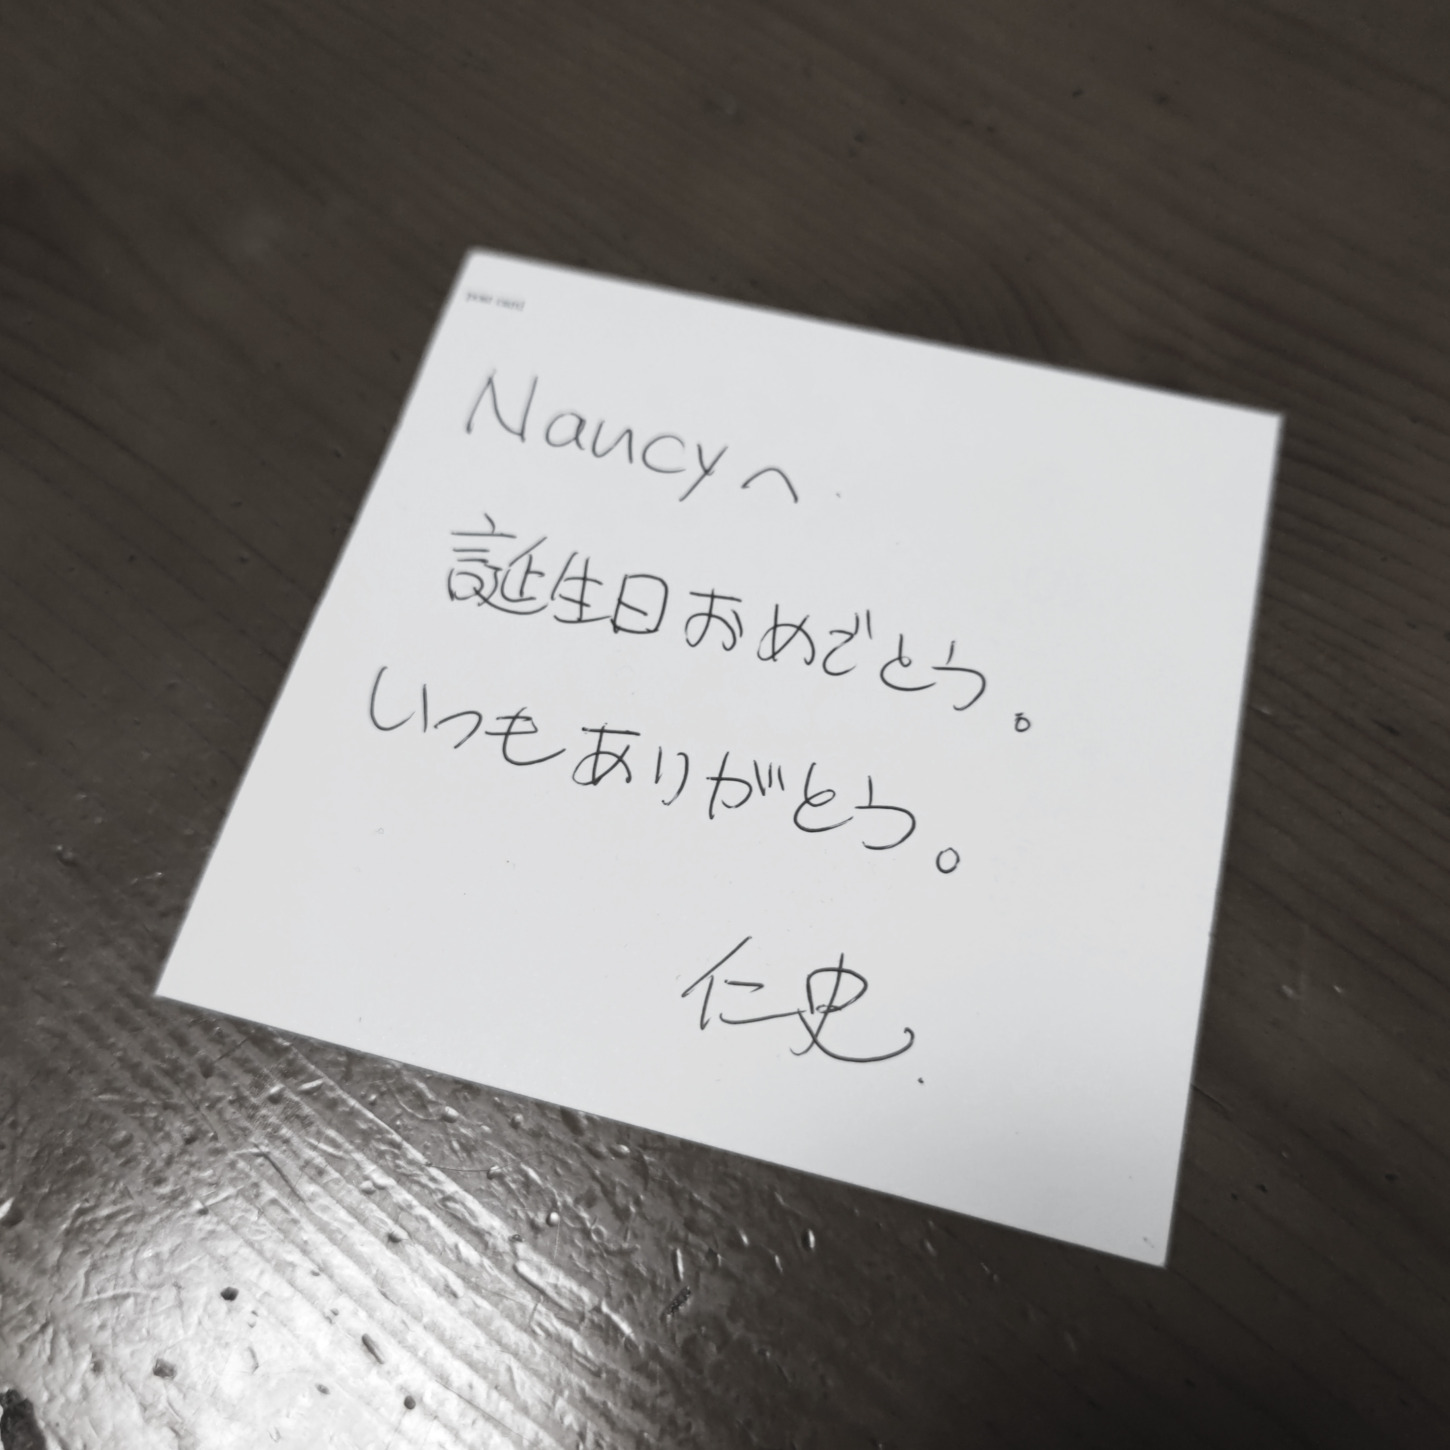 your card
Nancyへ
誕生日おめでとう。
いつもありがとう。
仁史.